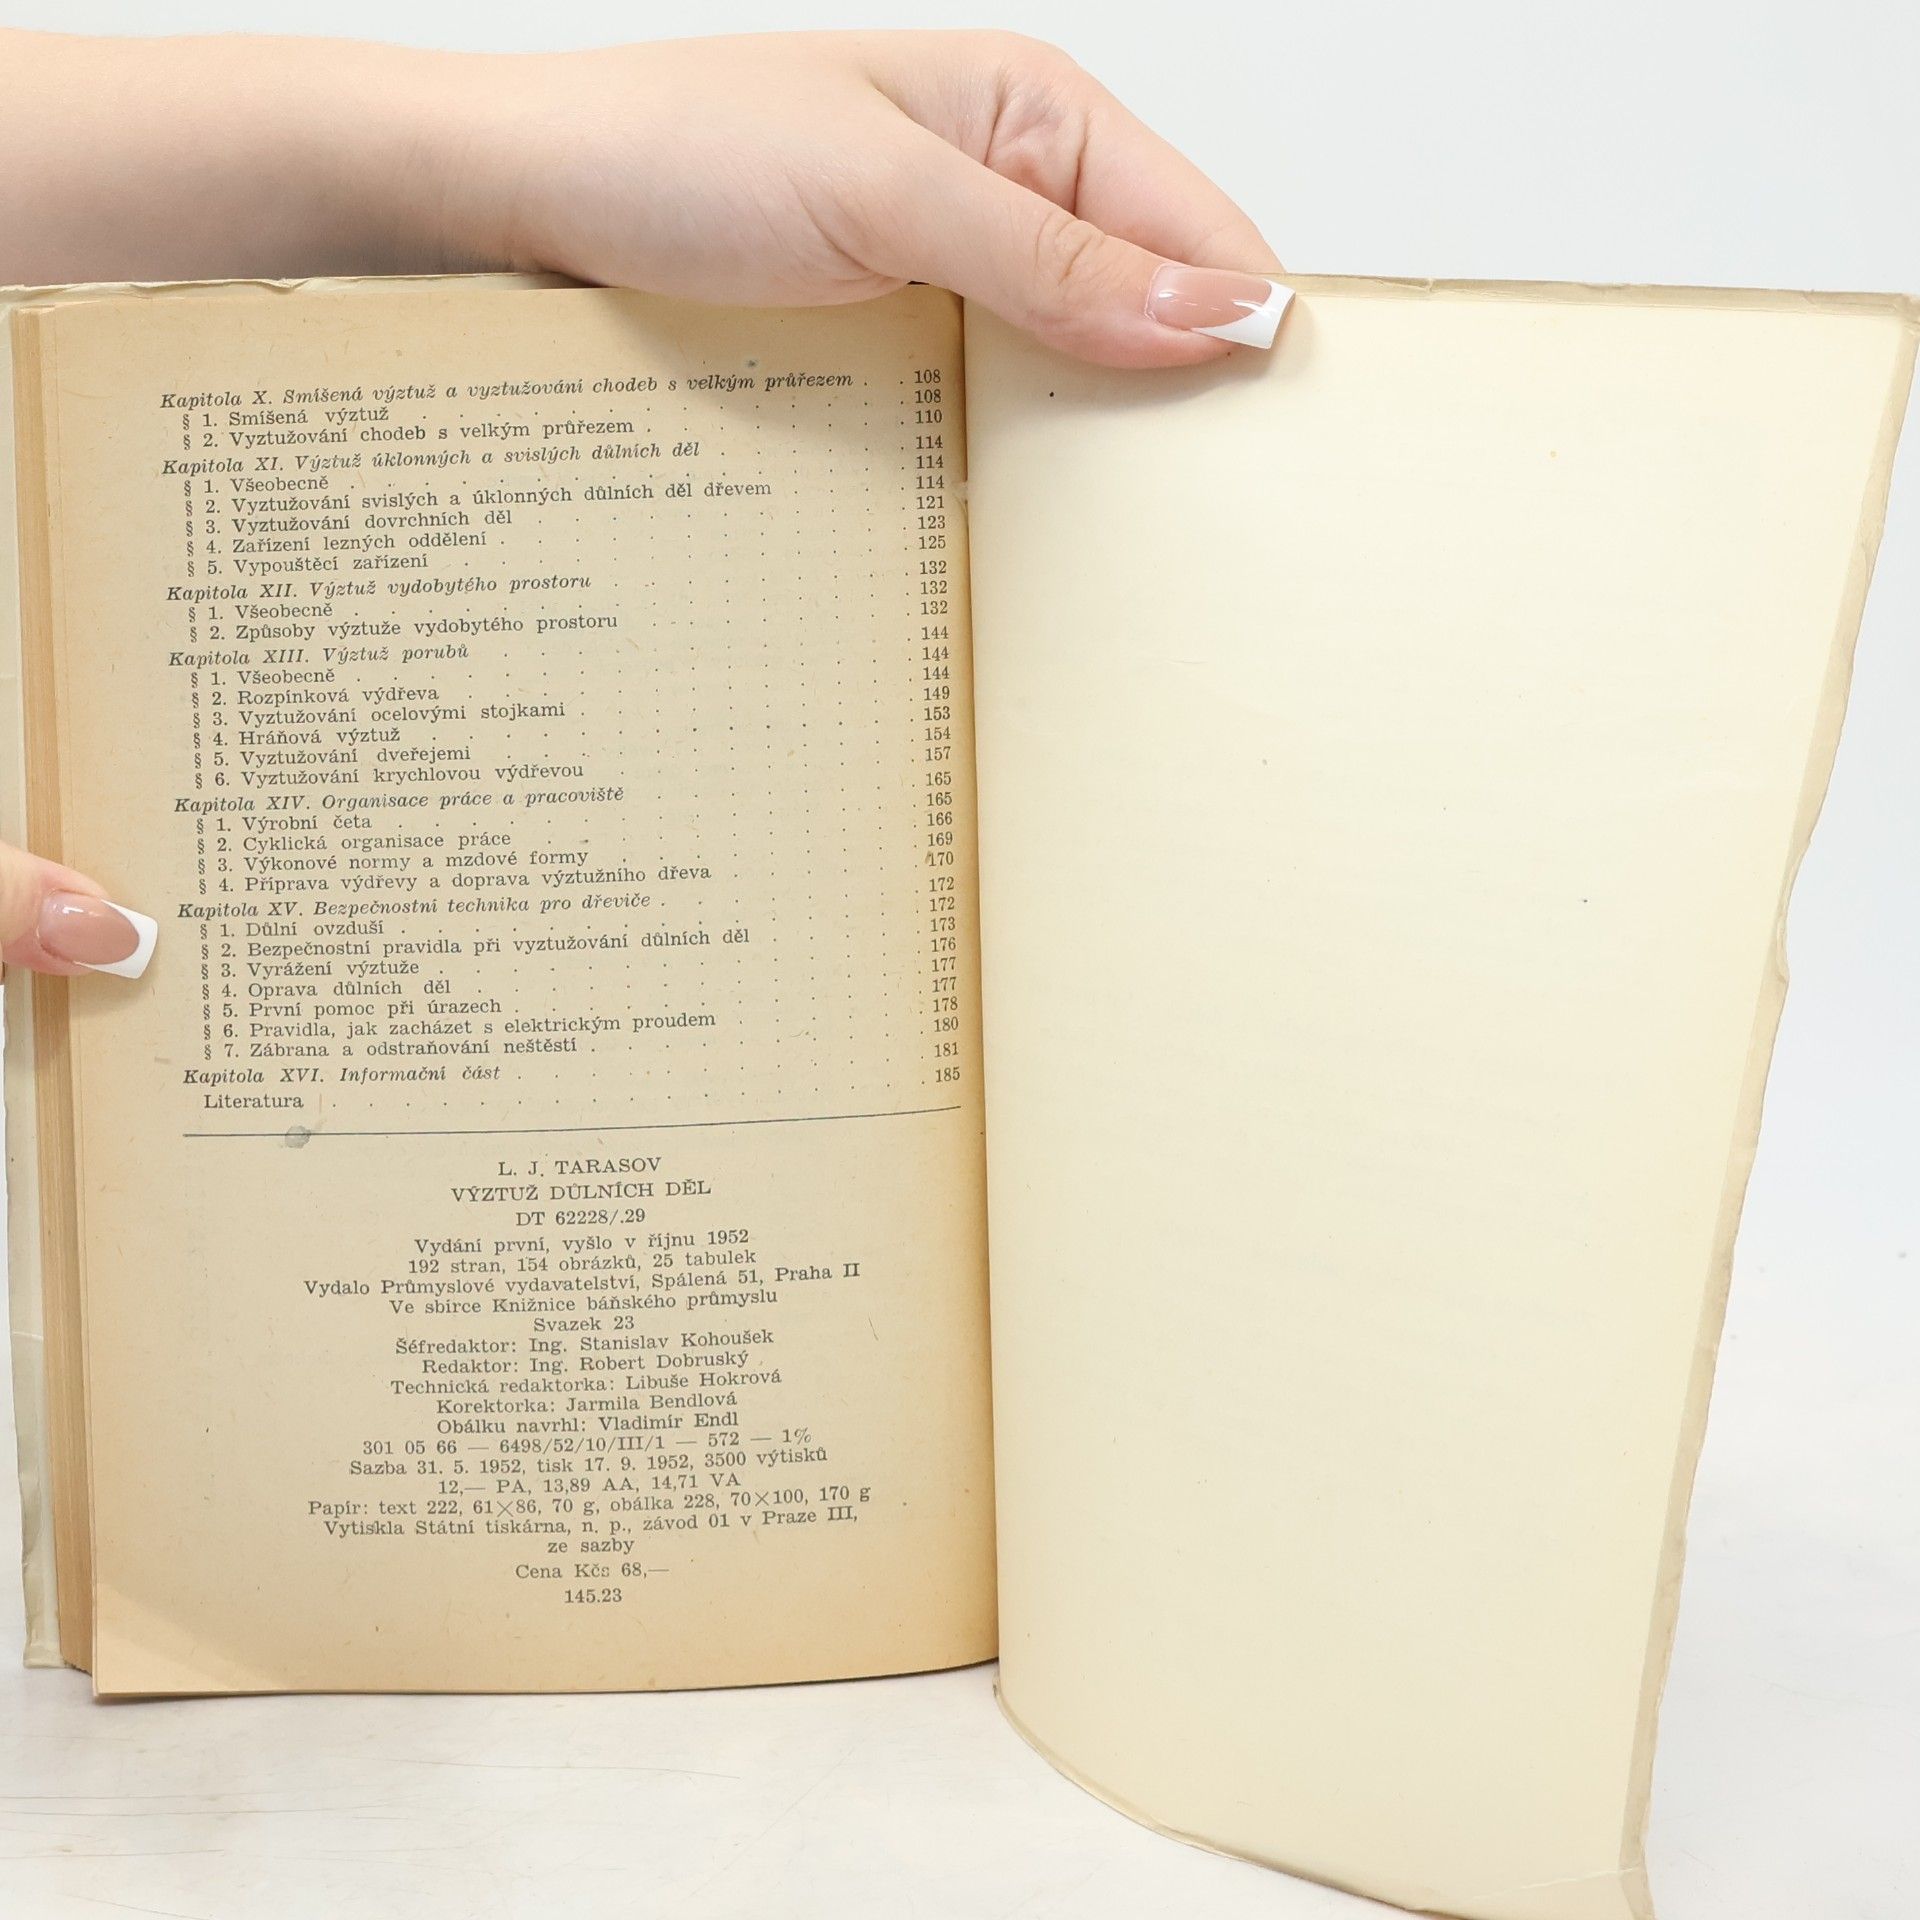 Kapitola X. Smíšená výztuž a vyztužování chodeb s velkým průřezem . . 108
§ 1. Smíšená výztuž . . . . . . . . . . 108
§ 2. Vyztužování chodeb s velkým průřezem . . . . . . 110
Kapitola XI. Výztuž úklonných a svislých důlních děl . . . . . 114
§ 1. Všeobecně . . . . . . . . . . . 114
§ 2. Vyztužování svislých a úklonných důlních děl dřevem . . . . 114
§ 3. Vyztužování dovrchních děl . . . . . . . . 121
§ 4. Zařízení lezných oddělení . . . . . . . . . 123
§ 5. Vypouštěcí zařízení . . . . . . . . . 125
Kapitola XII. Výztuž vydobytého prostoru . . . . . . . 132
§ 1. Všeobecně . . . . . . . . . . . 132
§ 2. Způsoby výztuže vydobytého prostoru . . . . . . 132
Kapitola XIII. Výztuž porubů . . . . . . . . . 144
§ 1. Všeobecně . . . . . . . . . . . 144
§ 2. Rozpínková výdřeva . . . . . . . . . 144
§ 3. Vyztužování ocelovými stojkami . . . . . . . 149
§ 4. Hráňová výztuž . . . . . . . . . . 153
§ 5. Vyztužování dveřejemi . . . . . . . . . 154
§ 6. Vyztužování krychlovou výdřevou . . . . . . . 157
Kapitola XIV. Organisace práce a pracoviště . . . . . . 165
§ 1. Výrobní četa . . . . . . . . . . . 165
§ 2. Cyklická organisace práce . . . . . . . . 166
§ 3. Výkonové normy a mzdové formy . . . . . . . 169
§ 4. Příprava výdřevy a doprava výztužního dřeva . . . . . 170
Kapitola XV. Bezpečnostní technika pro dřeviče . . . . . . 172
§ 1. Důlní ovzduší . . . . . . . . . . 172
§ 2. Bezpečnostní pravidla při vyztužování důlních děl . . . . 173
§ 3. Vyrážení výztuže . . . . . . . . . . 176
§ 4. Oprava důlních děl . . . . . . . . . 177
§ 5. První pomoc při úrazech . . . . . . . . . 177
§ 6. Pravidla, jak zacházet s elektrickým proudem . . . . . 178
§ 7. Zábrana a odstraňování neštěstí . . . . . . . 180
Kapitola XVI. Informační část . . . . . . . . . 181
Literatura . . . . . . . . . . . . 185
L. J. TARASOV
VÝZTUŽ DŮLNÍCH DĚL
DT 62228/.29
Vydání první, vyšlo v říjnu 1952
192 stran, 154 obrázků, 25 tabulek
Vydalo Průmyslové vydavatelství, Spálená 51, Praha II
Ve sbírce Knižnice báňského průmyslu
Svazek 23
Šéfredaktor: Ing. Stanislav Kohoušek
Redaktor: Ing. Robert Dobruský
Technická redaktorka: Libuše Hokrová
Korektorka: Jarmila Bendlová
Obálku navrhl: Vladimír Endl
301 05 66 — 6498/52/10/III/1 — 572 — 1%
Sazba 31. 5. 1952, tisk 17. 9. 1952, 3500 výtisků
12,— PA, 13,89 AA, 14,71 VA
Papír: text 222, 61×86, 70 g, obálka 228, 70×100, 170 g
Vytiskla Státní tiskárna, n. p., závod 01 v Praze III,
ze sazby
Cena Kčs 68,—
145.23